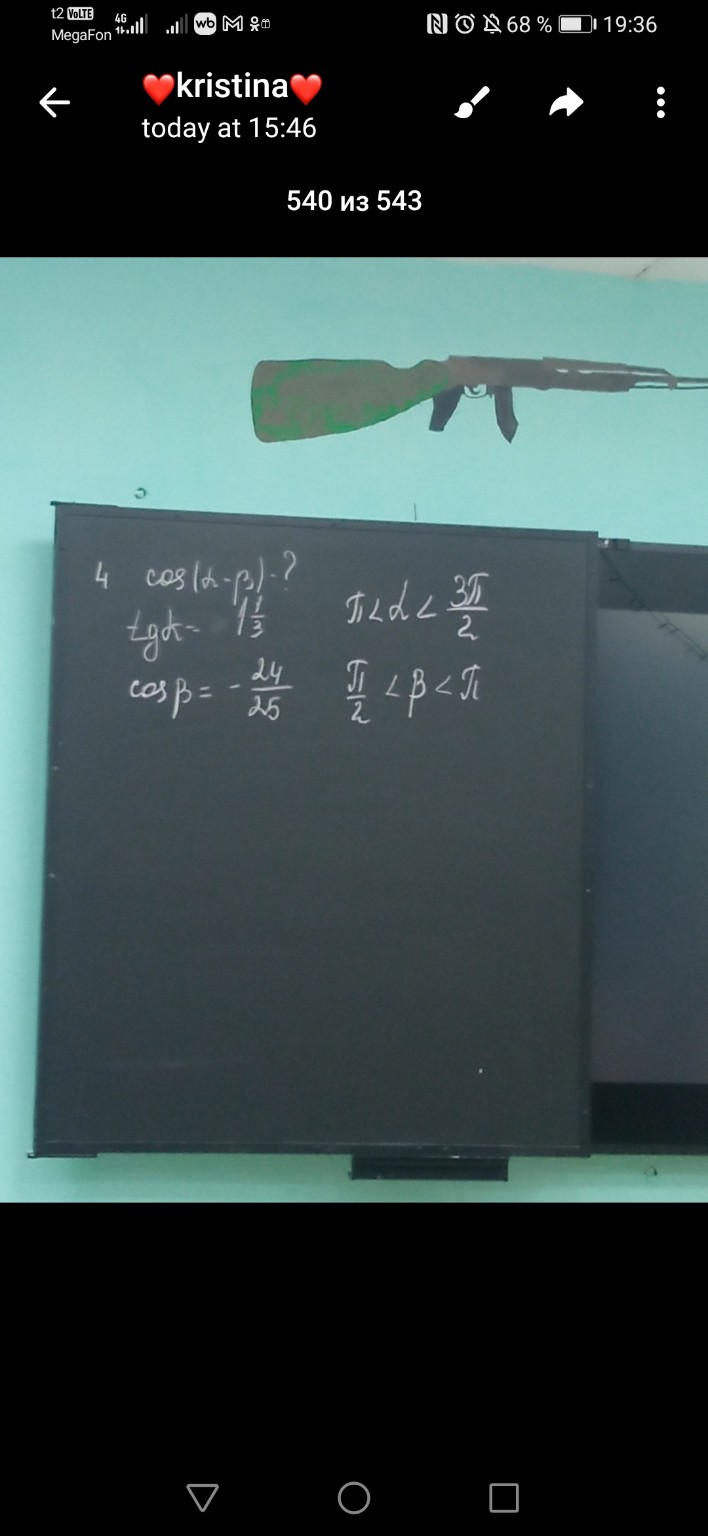 t2 VoLTE 4G wb 68 % 19:36
MegaFon
❤️kristina❤️
today at 15:46
540 из 543
4 cos(α-β)-?
tgα= 1 1/3 π<α< 3π/2
cosβ= - 24/25 π/2 <β<π